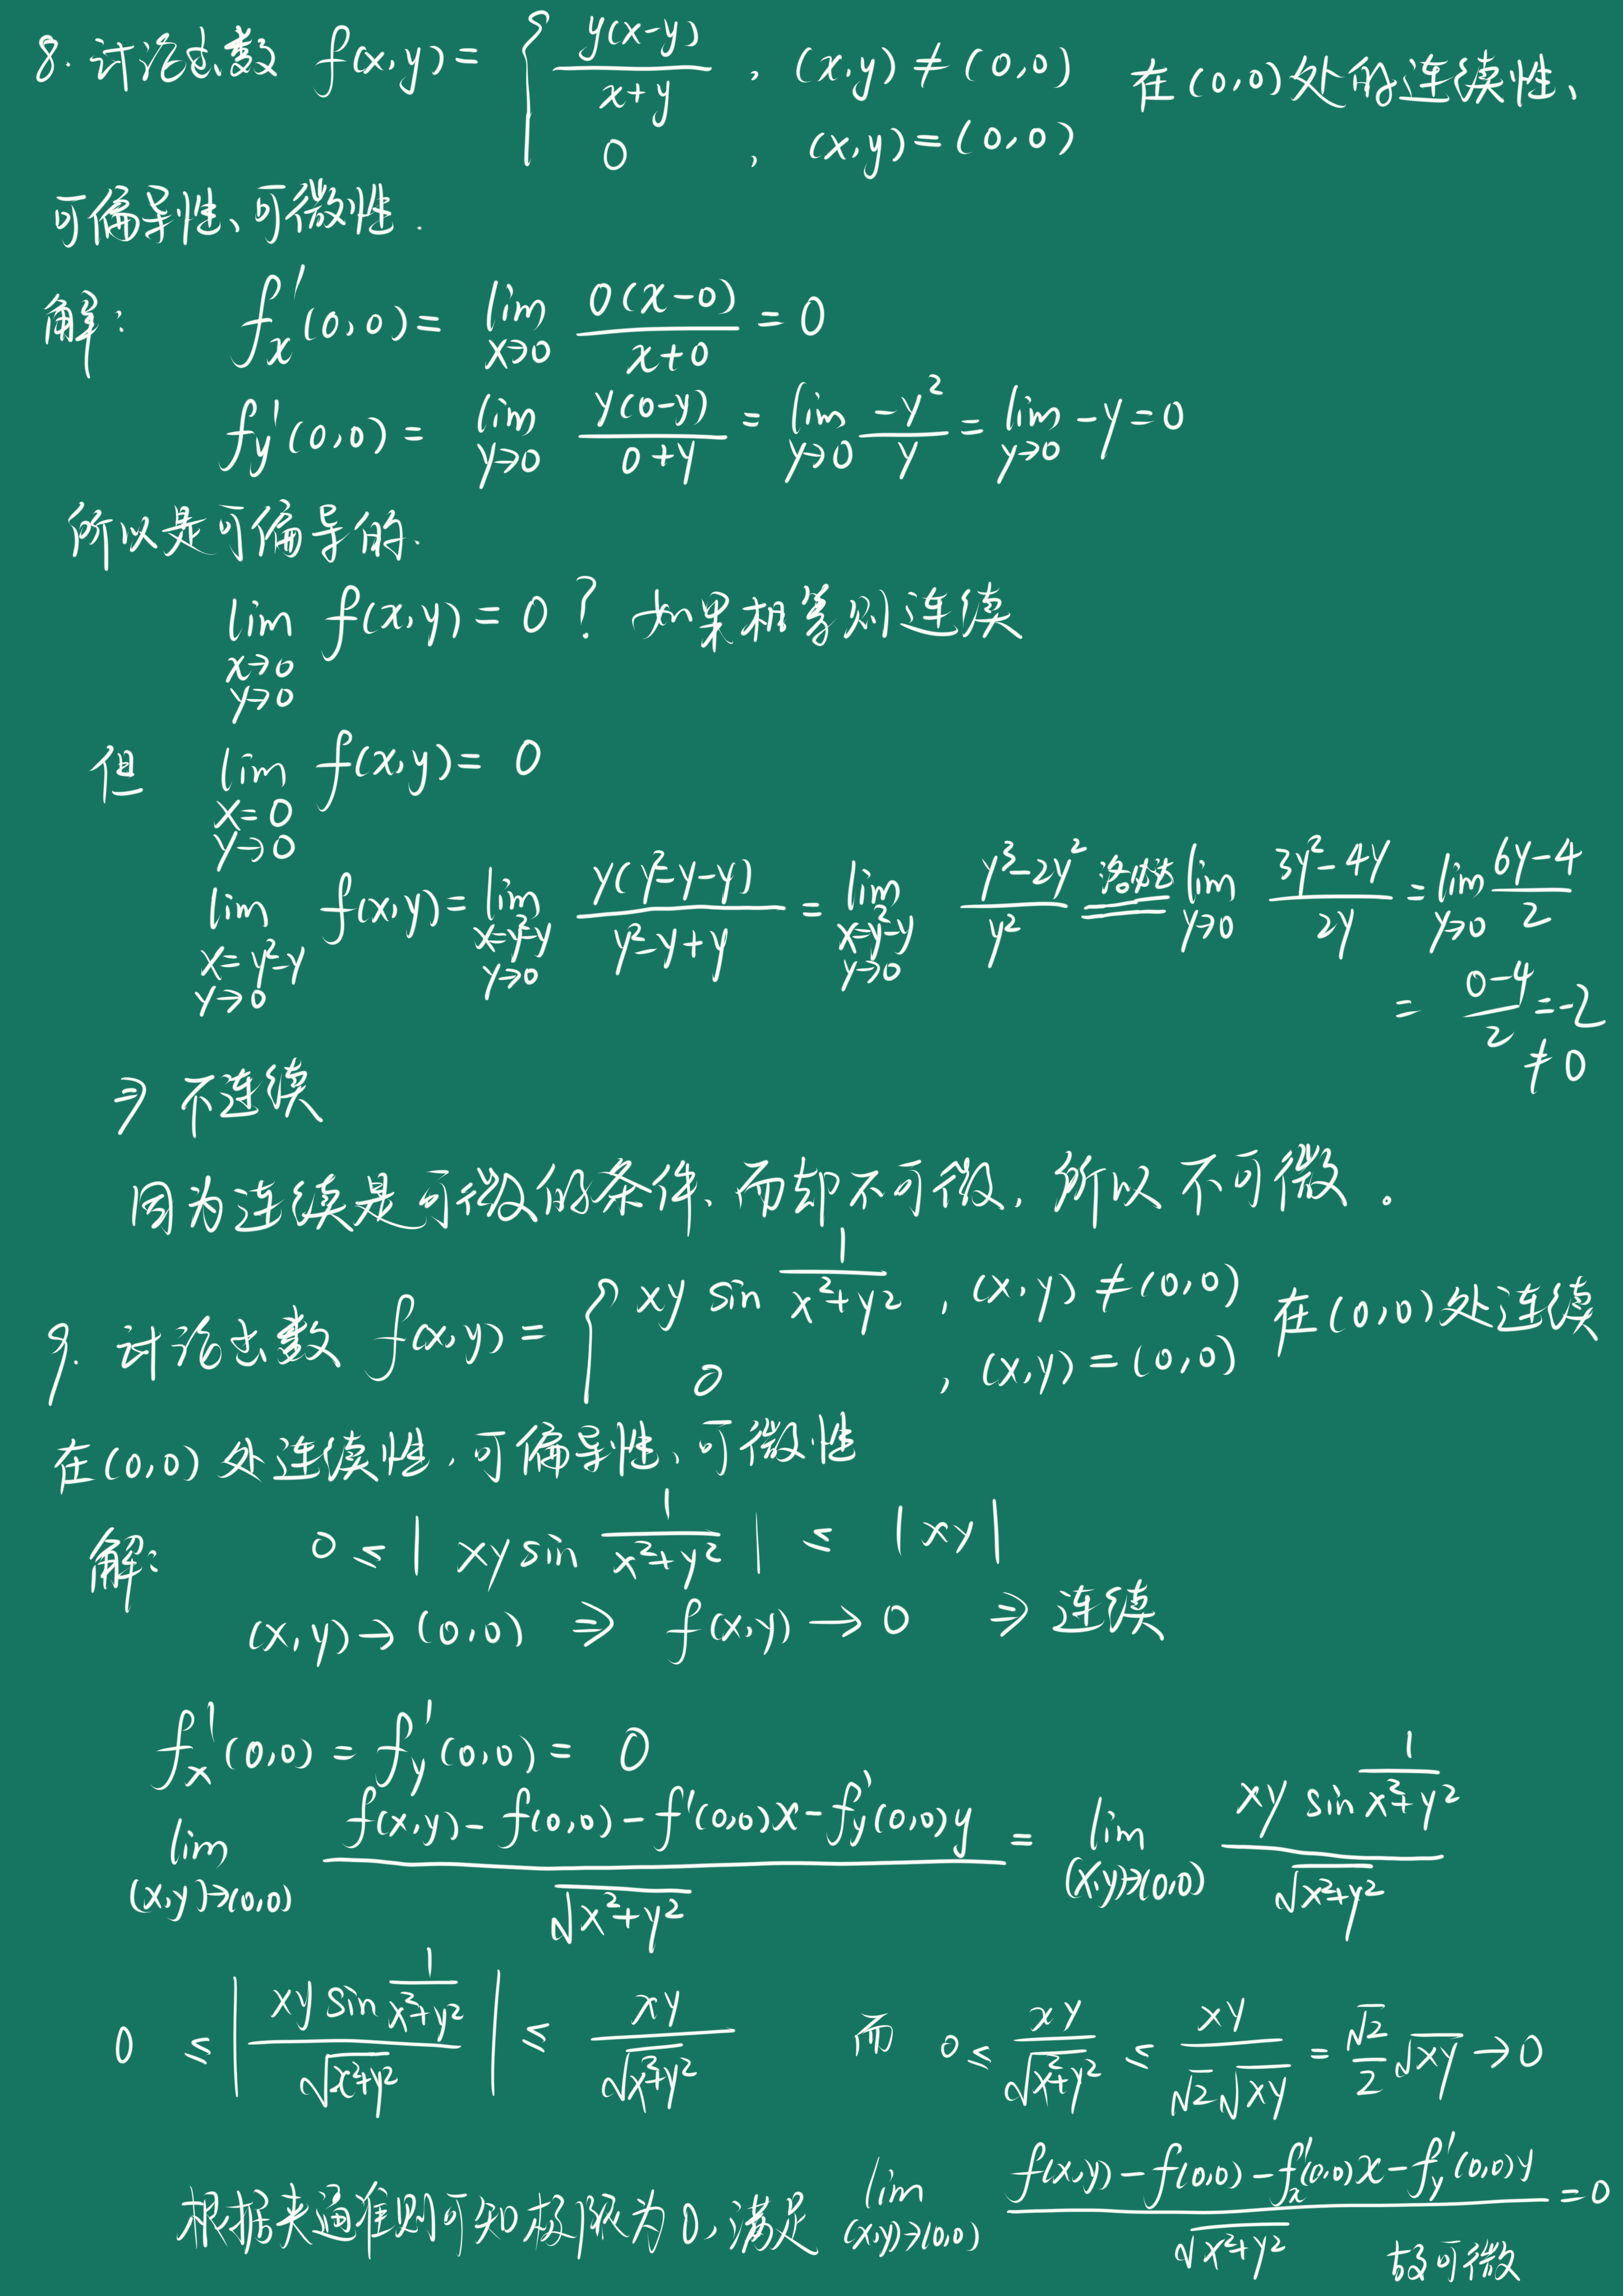 8. 讨论函数 f(x,y) = { y(x-y)/(x+y) , (x,y) ≠ (0,0) 在(0,0)处的连续性、
0 , (x,y) = (0,0)
可偏导性、可微性.
解: f'x(0,0) = lim x→0 0(x-0)/(x+0) = 0
fy'(0,0) = lim y→0 y(0-y)/(0+y) = lim y→0 -y²/y = lim y→0 -y = 0
所以是可偏导的.
lim x→0 y→0 f(x,y) = 0 ? 如果相等则连续
但 lim x=0 y→0 f(x,y) = 0
lim x=y²-y y→0 f(x,y) = lim x=y²-y y→0 y(y²-y-y)/(y²-y+y) = lim x=y²-y y→0 (y³-2y²)/y² 洛必达 lim y→0 (3y²-4y)/2y = lim y→0 (6y-4)/2
= (0-4)/2 = -2
≠ 0
⇒ 不连续
因为连续是可微的条件、而却不可微, 所以不可微。
9. 讨论函数 f(x,y) = { xy sin 1/(x²+y²) , (x,y) ≠ (0,0) 在(0,0)处连续
0 , (x,y) = (0,0)
在(0,0)处连续性,可偏导性、可微性
解: 0 ≤ | xy sin 1/(x²+y²) | ≤ |xy|
(x,y)→(0,0) ⇒ f(x,y)→0 ⇒ 连续
f'x(0,0) = f'y(0,0) = 0
lim (x,y)→(0,0) (f(x,y) - f(0,0) - f'(0,0)x - f'y(0,0)y)/√(x²+y²) = lim (x,y)→(0,0) (xy sin 1/(x²+y²))/√(x²+y²)
0 ≤ | (xy sin 1/(x²+y²))/√(x²+y²) | ≤ xy/√(x²+y²) 而 0 ≤ xy/√(x²+y²) ≤ xy/(√2√xy) = √2/2 √xy → 0
根据夹逼准则可知极限为0,满足 lim (x,y)→(0,0) (f(x,y) - f(0,0) - f'x(0,0)x - f'y(0,0)y)/√(x²+y²) = 0
故可微